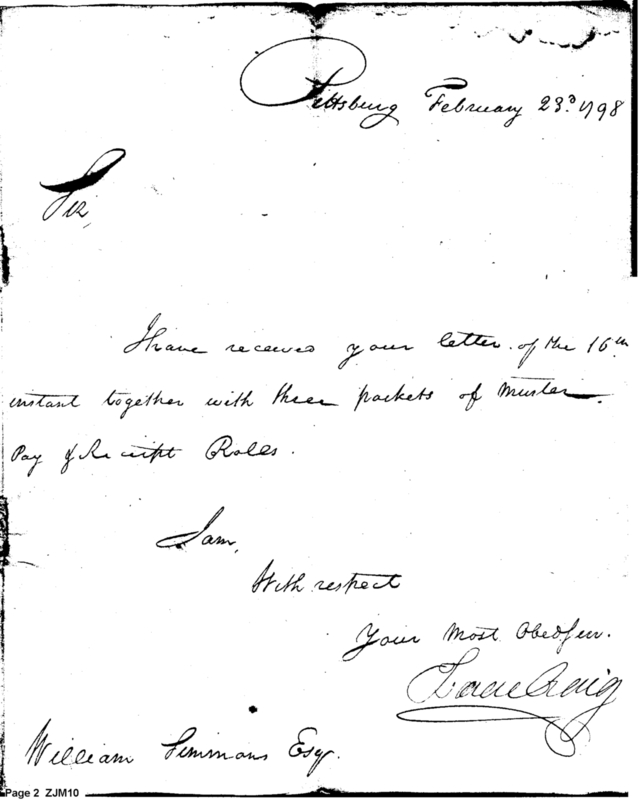 Pittsburg February 23d. 1798
Sir,
I have received your letter of the 16th
instant together with three packets of Muster
Pay & Receipt Rolls.
I am,
With respect
Your Most Obed Ser.
Isaac Craig
William Simmons Esq.
Page 2 ZJM10